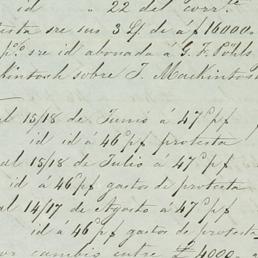 id " 22 del corr.te
sre sus 3 Lf de á £ 16000
sre id abonada á G. F. Pohls
kintosh sobre J. Mackintosh
al 15/18 de Junio á 47 pf
id id á 46 pf protesta
al 15/18 de Julio á 47 pf
id á 46 pf gastos de protesta
al 14/17 de Agosto á 47 pf
id á 46 pf gastos de protesta
cambio entre £ 4000